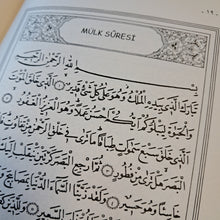 MÜLK SÛRESİ
بِسْمِ اللهِ الرَّحْمٰنِ الرَّحِيمِ
تَبَارَكَ الَّذِي بِيَدِهِ الْمُلْكُ وَهُوَ عَلٰى كُلِّ شَيْءٍ قَدِيرٌ الَّذِي خَلَقَ
وَالْحَيٰوةَ لِيَبْلُوَكُمْ اَيُّكُمْ اَحْسَنُ عَمَلًا وَهُوَ الْعَزِيزُ الْغَفُورُ
الَّذِي خَلَقَ سَبْعَ سَمٰوَاتٍ طِبَاقًا مَا تَرٰى فِي خَلْقِ الرَّحْمٰنِ مِنْ تَفَاوُتٍ
الْبَصَرَ هَلْ تَرٰى مِنْ فُطُورٍ ثُمَّ ارْجِعِ الْبَصَرَ كَرَّتَيْنِ يَنْقَلِبْ اِلَيْكَ
وَهُوَ حَسِيرٌ وَلَقَدْ زَيَّنَّا السَّمَاءَ الدُّنْيَا بِمَصَابِيحَ